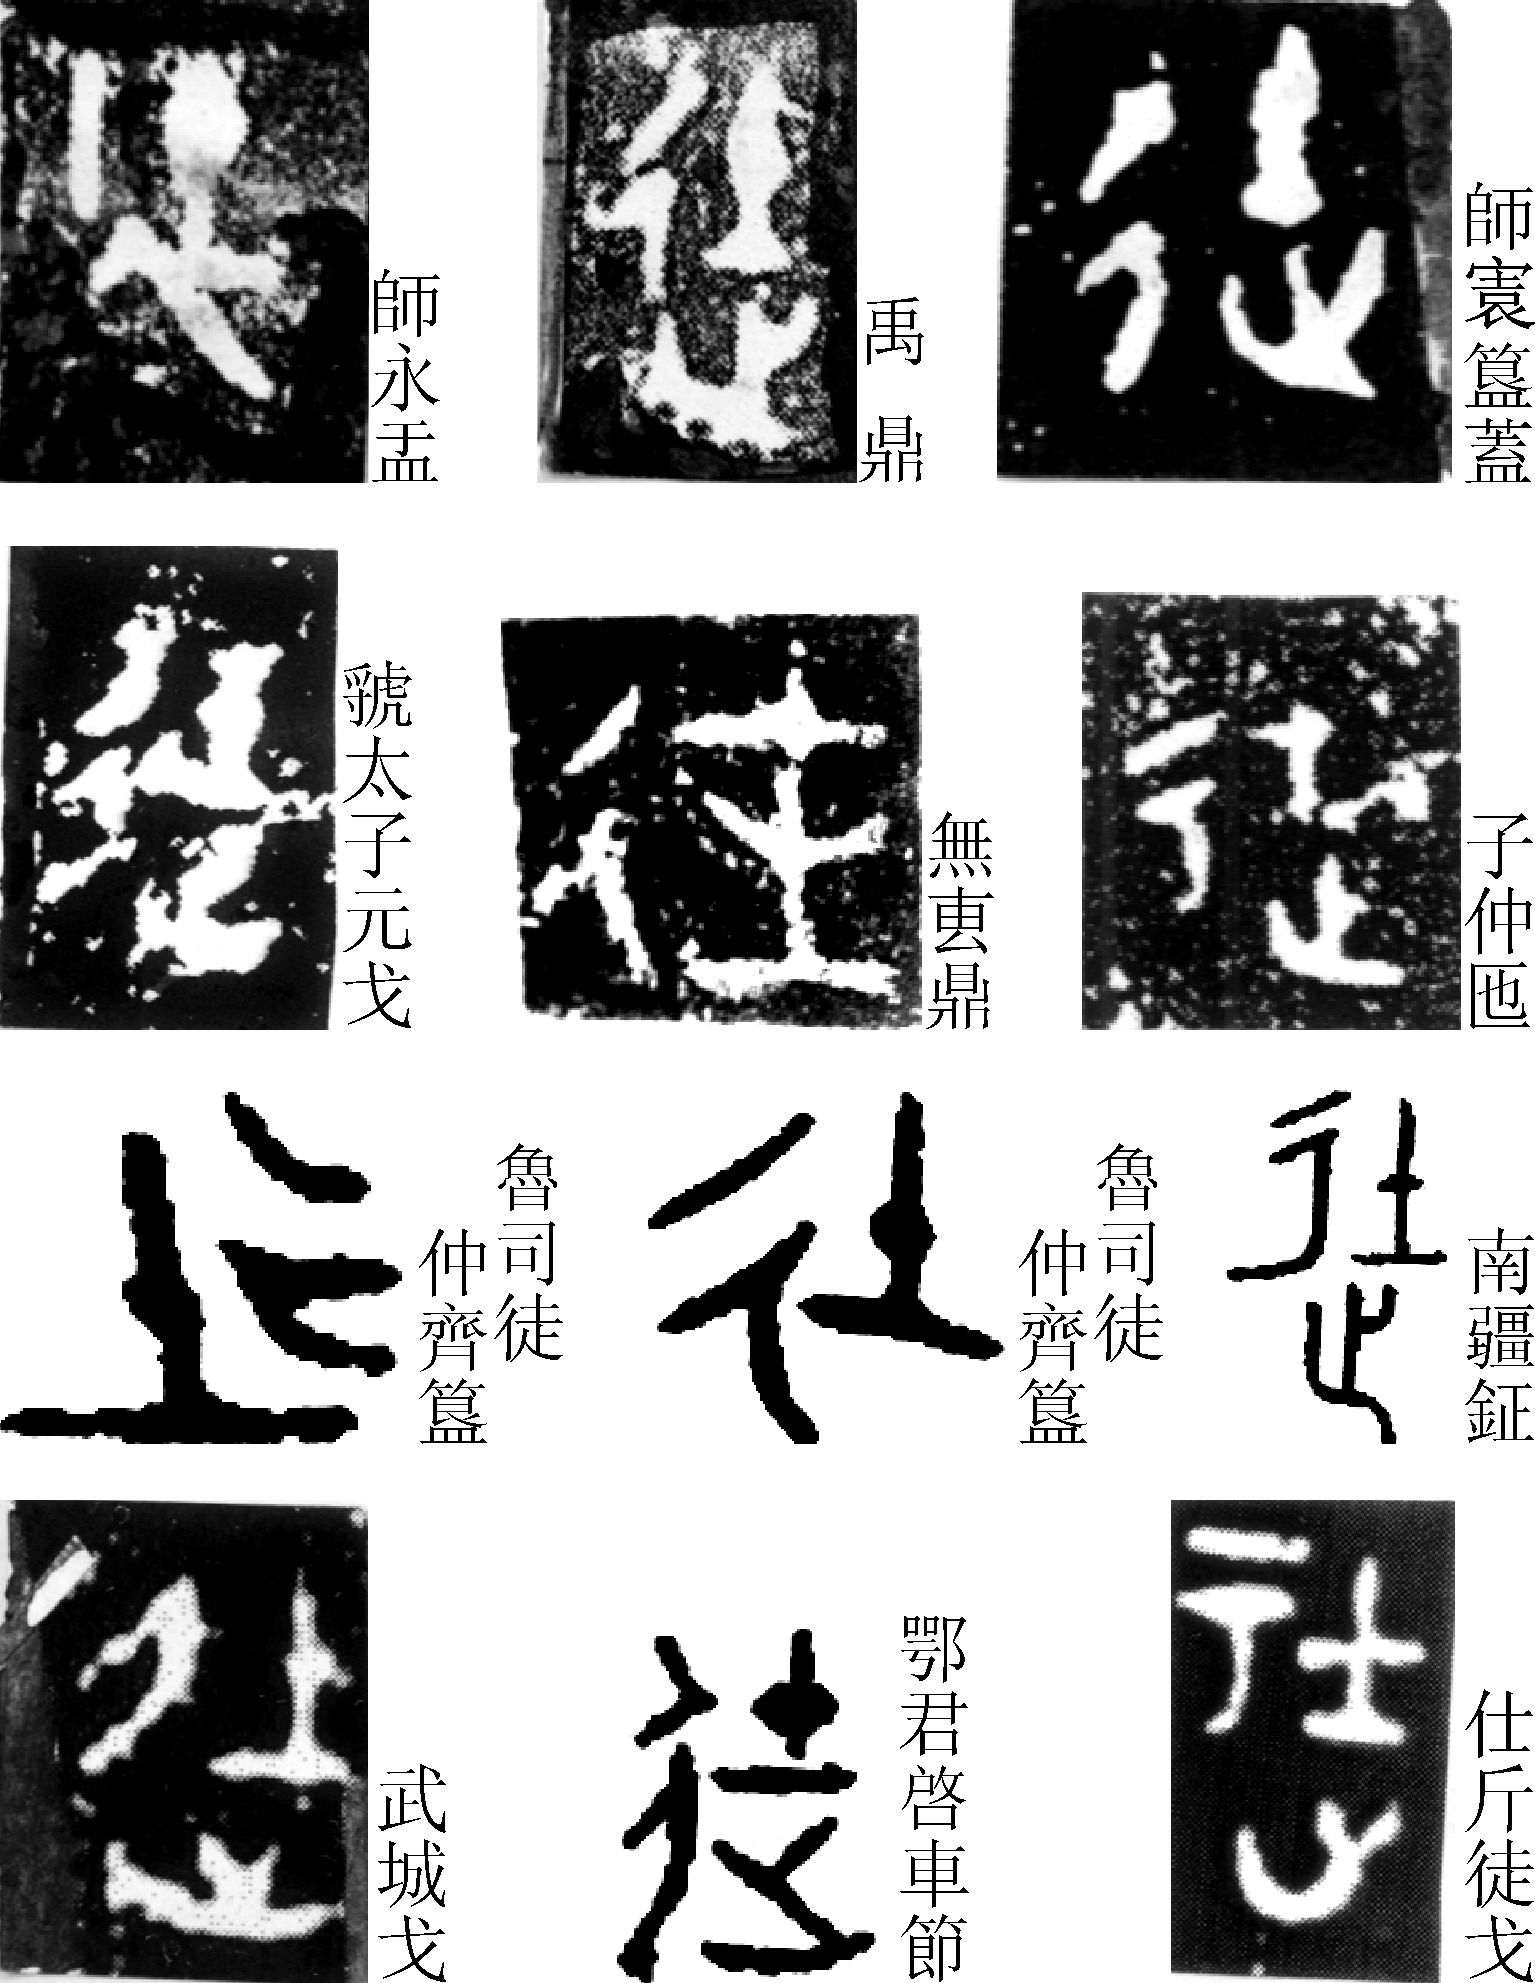 師㝨簋蓋
禹鼎
師永盂
子仲匜
無叀鼎
虢太子元戈
南疆鉦
魯司徒
仲齊簋
魯司徒
仲齊簋
仕斤徒戈
鄂君啓車節
武城戈